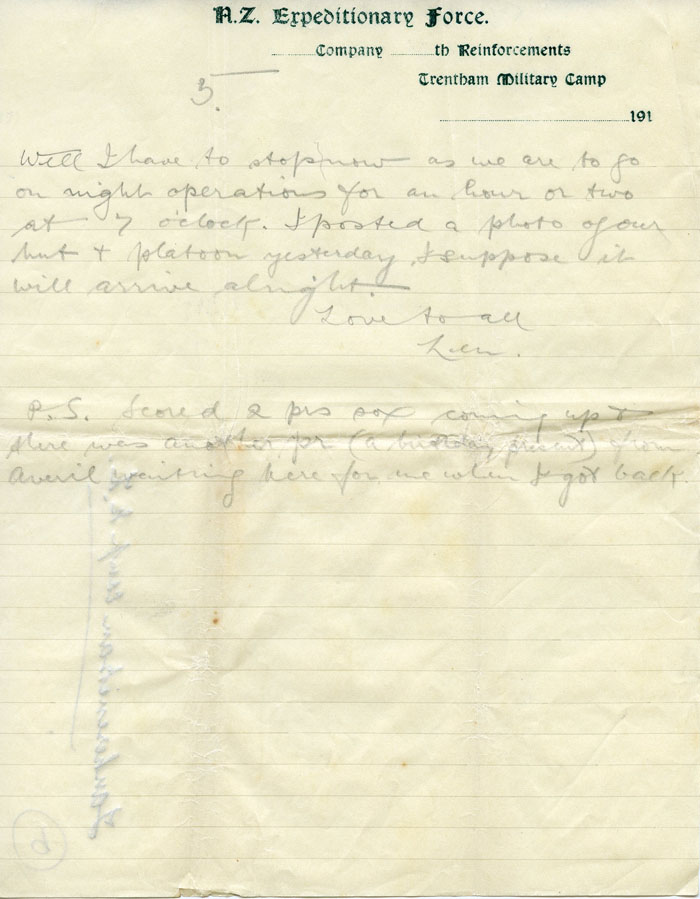 N.Z. Expeditionary Force.
Company th Reinforcements
Trentham Military Camp
191
5.
Well I have to stop now as we are to go
on night operations for an hour or two
at 7 o'clock. I posted a photo of our
hut & platoon yesterday I suppose it
will arrive alright.
Love to all
Len.
P.S. Scored 2 prs sox coming up &
there was another pr (a birthday present) from
Averil waiting here for me when I got back.